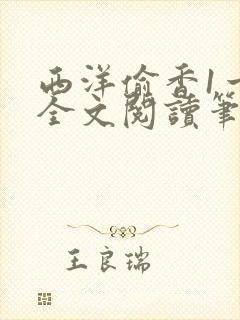 西洋偷香1一
全文閱讀筆
王良瑞